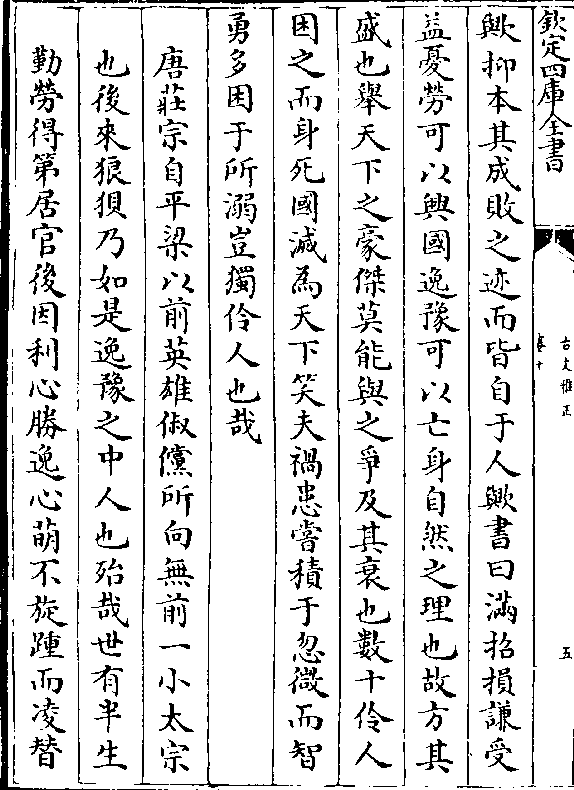 欽定四庫全書
古文雅正
卷十
五
歟抑本其成敗之迹而皆自于人歟書曰滿招損謙受
益憂勞可以興國逸豫可以亡身自然之理也故方其
盛也舉天下之豪傑莫能與之爭及其衰也數十伶人
困之而身死國滅為天下笑夫禍患嘗積于忽微而智
勇多困于所溺豈獨伶人也哉
唐莊宗自平梁以前英雄俶儻所向無前一小太宗
也後來狼狽乃如是逸豫之中人也殆哉世有半生
勤勞得第居官後因利心勝逸心萌不旋踵而凌替